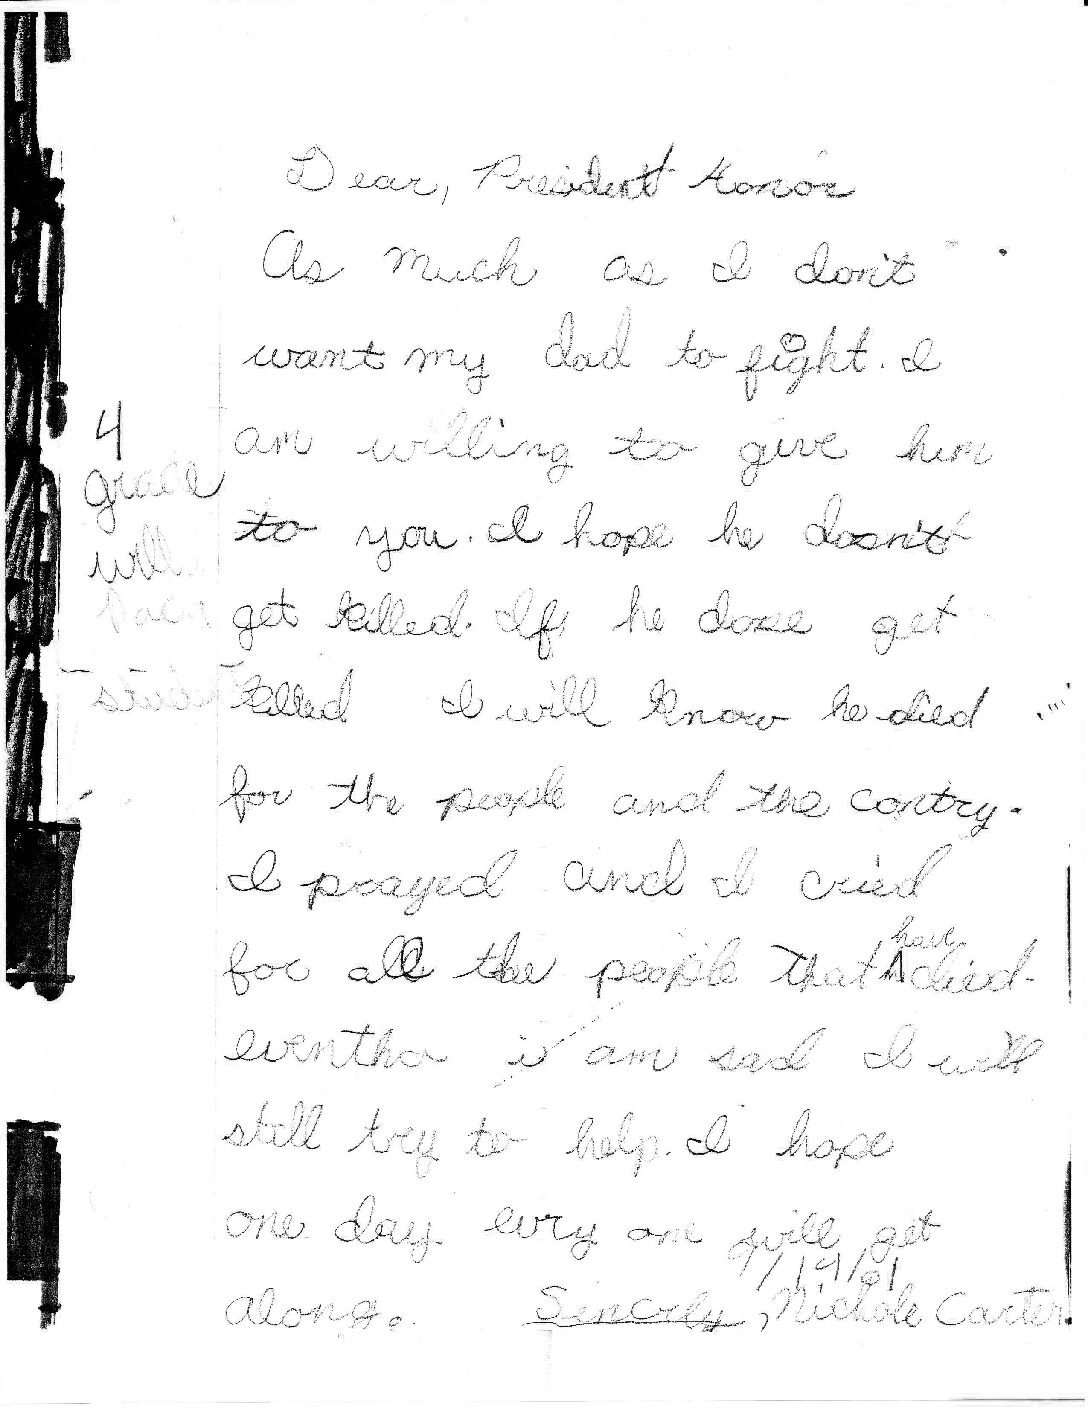 Dear, President Honor
As much as I don't
want my dad to fight. I
am willing to give him
to you. I hope he dosn't
get killed. If he dose get
killed I will know he died
for the people and the contry.
I prayed and I cried
for all the people that have died.
eventho i am sad I will
still try to help. I hope
one day evry one will get
along.
9/19/01
Sincrely, Nichole Carter
4
grade
will